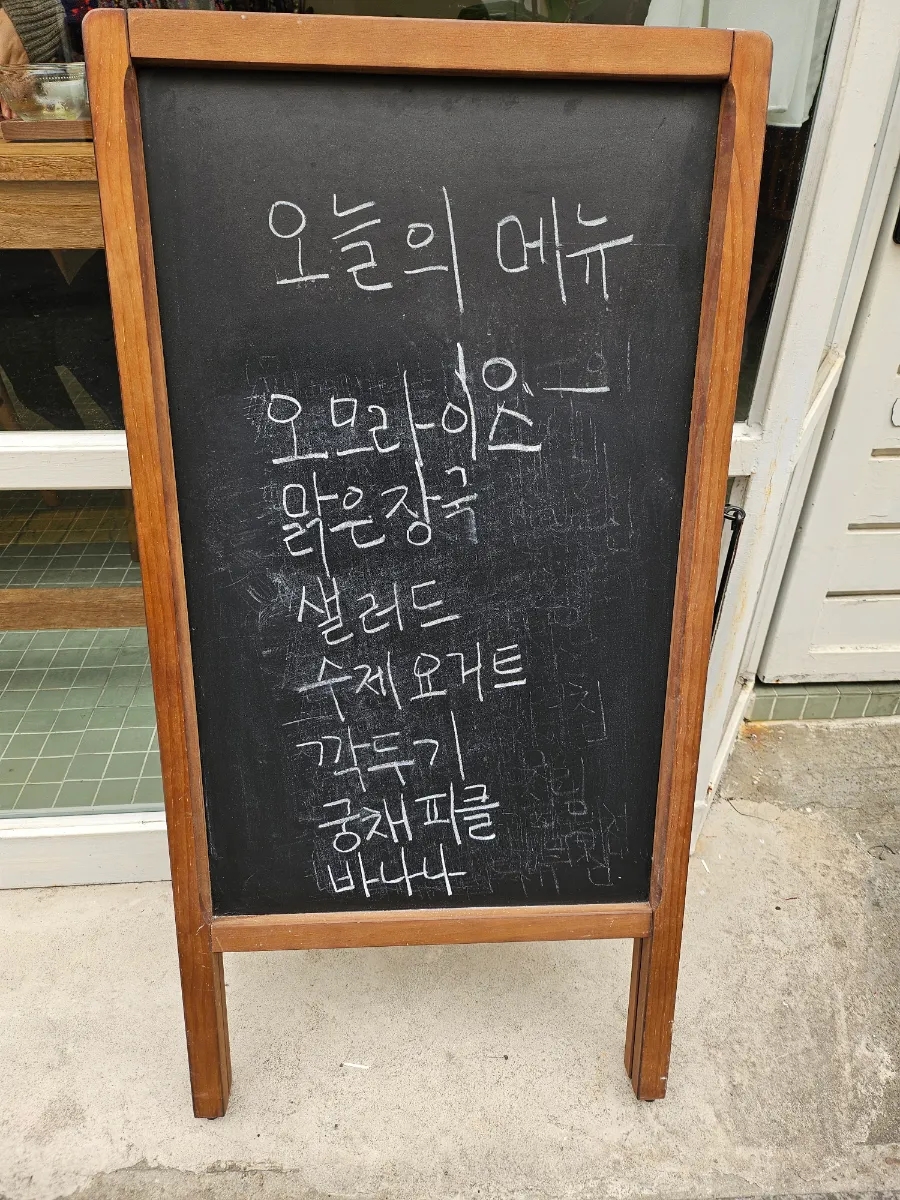 오늘의 메뉴
오므라이스
맑은장국
샐러드
수제요거트
깍두기
궁채피클
바나나